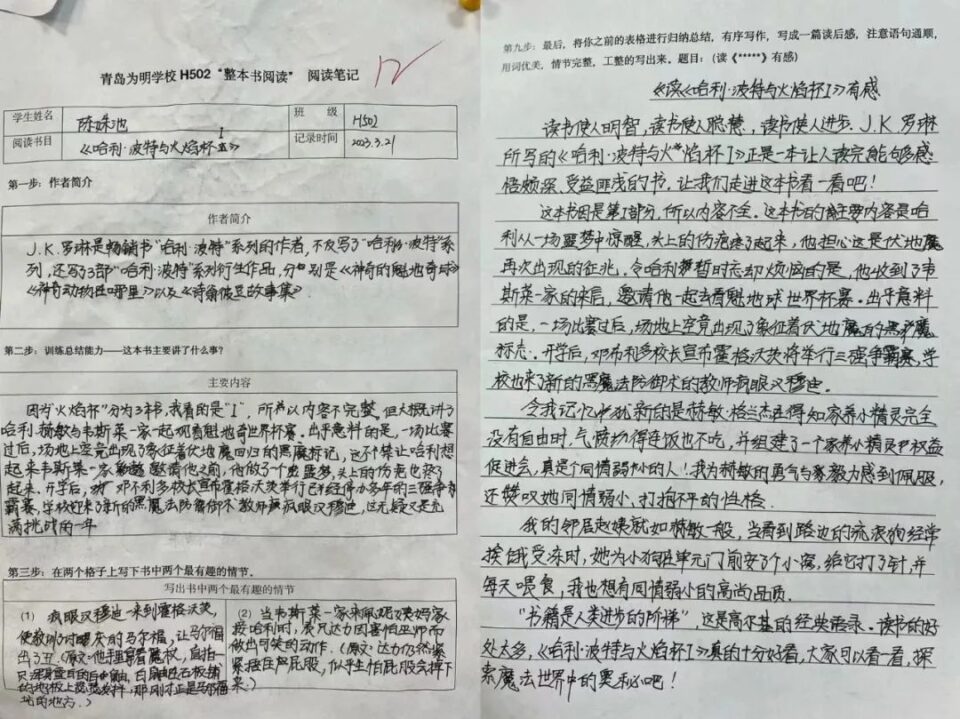 青岛为明学校 H502 "整本书阅读" 阅读笔记
学生姓名 陈姝池 班 级 H502
阅读书目 《哈利·波特与火焰杯 I》 记录时间 2023.3.21
第一步：作者简介
作者简介
J.K.罗琳是畅销书"哈利·波特"系列的作者，不仅写了"哈利·波特"系
列，还写了3部"哈利·波特"系列衍生作品，分别是《神奇的魁地奇球》
《神奇动物在哪里》以及《诗翁彼豆故事集》
第二步：训练总结能力——这本书主要讲了什么事？
主要内容
因为"火焰杯"分为3本，我看的是"I"，所以内容不完整，但大概讲了
哈利、赫敏与韦斯莱一家一起观看魁地奇世界杯赛。出乎意料的是，一场比赛
过后，场地上空竟出现了象征着伏地魔回归的黑魔标记，这不禁让哈利想
起来韦斯莱一家邀请他之前，他做了个噩梦，头上的伤疤也疼了
起来。开学后，邓不利多校长宣布霍格沃茨举行已经停办多年的三强争
霸赛，学校迎来了新的黑魔法防御术教师疯眼汉穆迪，这无疑又是充
满挑战的一年
第三步：在两个格子上写下书中两个最有趣的情节.
写出书中两个最有趣的情节
(1) 疯眼汉穆迪一来到霍格沃茨，
便教训了
的马尔福，让马尔福
(2) 当韦斯莱一家来佩妮姨妈家
接哈利时，表兄达力因害怕巫师而
做出可笑的动作。（原文：达力仍然紧
紧捂住屁股，似乎生怕屁股会掉下
来。）
第九步：最后，将你之前的表格进行归纳总结，有序写作，写成一篇读后感，注意语句通顺，
用词优美，情节完整，工整的写出来。题目：（读《*****》有感）
《读《哈利·波特与火焰杯I》有感
读书使人明智，读书使人聪慧，读书使人进步。J.K.罗琳
所写的《哈利·波特与火焰杯I》正是一本让人读完能够感
悟颇深、受益匪浅的书。让我们走进这本书看一看吧！
这本书因是第I部分，所以内容不全。这本书的主要内容是哈
利从一场噩梦中惊醒，头上的伤疤疼了起来，他担心这是伏地魔
再次出现的征兆。令哈利暂时忘却烦恼的是，他收到了韦
斯莱一家的来信，邀请他一起去看魁地球世界杯赛。出乎意料
的是，一场比赛过后，场地上空竟出现了象征着伏地魔的黑魔
标志。开学后，邓布利多校长宣布霍格沃茨将举行三强争霸赛，学
校也来了新的黑魔法防御术的教师疯眼汉穆迪。
令我记忆中犹新的是赫敏·格兰杰在得知家养小精灵完全
没有自由时，气愤切得连饭也不吃，并组建了一个家养小精灵权益
促进会，真是个同情弱小的人！我为赫敏的勇气与毅力感到佩服，
还赞叹她同情弱小、打抱不平的性格。
我的邻居赵姨就如赫敏一般，当看到路边的流浪狗经常
挨饿受冻时，她为小狗在单元门前安了个小窝，给它打了针，并
每天喂食，我也想有同情弱小的高尚品质。
"书籍是人类进步的阶梯"，这是高尔基的经典语录。读书的好
处太多，《哈利·波特与火焰杯I》真的十分好看，大家可以看一看，探
索魔法世界中的奥秘吧！